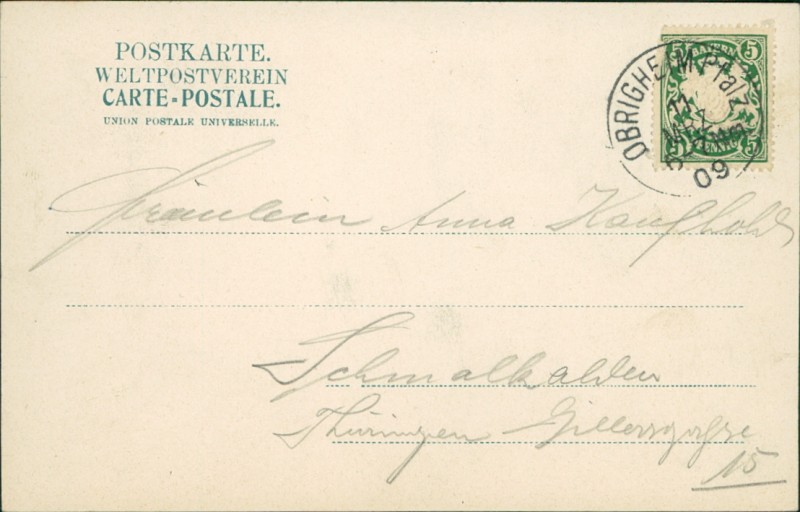 POSTKARTE.
WELTPOSTVEREIN
CARTE=POSTALE.
UNION POSTALE UNIVERSELLE.
5 BAYERN 5
5 PFENNIG 5
OBRIGHEIM, Pfalz
11
MRZ
09
Fräulein Anna Kaufhold
Schmalkalden
Thüringen
15